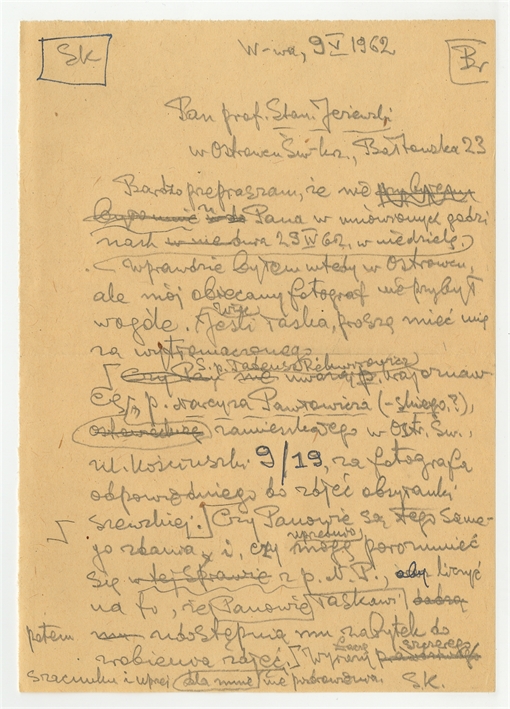 SK
W-wa, 9 V 1962
Br
Pan prof. Stan. Jeżewski
w Ostrowcu Św-krz., Bałtowska 23
Bardzo przepraszam, że nie
Pana w umówionych godzi
nach 29 IV 62, w niedzielę,
Wprawdzie byłem wtedy w Ostrowcu,
ale mój obiecany fotograf nie przybył
wogóle. Jeśli łaska, proszę mieć mię
za wytłumaczonego
Ś. p. Tadeusz
uważał p. krajoznaw
cę, p. Narcyza Pawłowicza (-skiego?),
zamieszkałego w Ostr. Św.,
ul. Kościuszki 9/19, za fotografa
odpowiedniego do zdjęć
szewskiej. Czy Panowie są tego same-
go zdania i, czy mogę porozumieć
się w tej sprawie z p. N. P., liczyć
na to, że Panowie łaskawi
potem udostępnią mu zabytek do
zrobienia zdjęć. Wyrazy łączę szczerego
szacunku i uprzej dla mnie pozdrowienia. S.K.